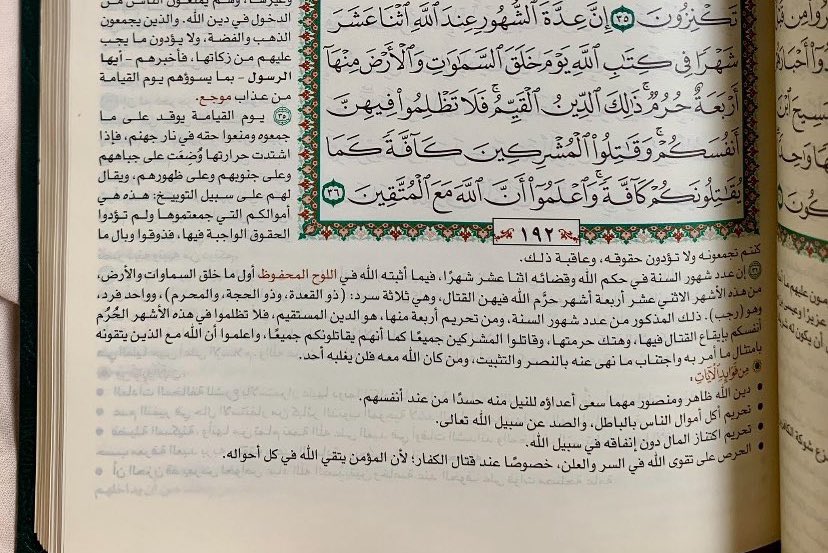 تَكْنِزُونَ ٣٥ إِنَّ عِدَّةَ الشُّهُورِ عِندَ اللَّهِ اثْنَا عَشَرَ
شَهْرًا فِي كِتَابِ اللَّهِ يَوْمَ خَلَقَ السَّمَاوَاتِ وَالْأَرْضَ مِنْهَا
أَرْبَعَةٌ حُرُمٌ ۚ ذَٰلِكَ الدِّينُ الْقَيِّمُ ۚ فَلَا تَظْلِمُوا فِيهِنَّ
أَنفُسَكُمْ ۚ وَقَاتِلُوا الْمُشْرِكِينَ كَافَّةً كَمَا
يُقَاتِلُونَكُمْ كَافَّةً ۚ وَاعْلَمُوا أَنَّ اللَّهَ مَعَ الْمُتَّقِينَ ٣٦
١٩٢
الدخول في دين الله، والذين يجمعون
الذهب والفضة، ولا يؤدون ما يجب
عليهم من زكاتها، فأخبرهم - أيها
الرسول - بما يسوؤهم يوم القيامة
من عذاب موجع.
٣٥ يوم القيامة يوقد على ما
جمعوه ومنعوا حقه في نار جهنم، فإذا
اشتدت حرارتها وُضِعَت على جباههم
وعلى جنوبهم وعلى ظهورهم، ويقال
لهم على سبيل التوبيخ: هذه هي
أموالكم التي جمعتموها ولم تؤدوا
الحقوق الواجبة فيها، فذوقوا وبال ما
كنتم تجمعونه ولا تؤدون حقوقه، وعاقبة ذلك.
٣٦ إن عدد شهور السنة في حكم الله وقضائه اثنا عشر شهرًا، فيما أثبته الله في اللوح المحفوظ أول ما خلق السماوات والأرض،
من هذه الأشهر الاثني عشر أربعة أشهر حرَّم الله فيهن القتال، وهي ثلاثة سرد: (ذو القعدة، وذو الحجة، والمحرم)، وواحد فرد،
وهو (رجب). ذلك المذكور من عدد شهور السنة، ومن تحريم أربعة منها، هو الدين المستقيم، فلا تظلموا في هذه الأشهر الحُرُم
أنفسكم بإيقاع القتال فيها، وهتك حرمتها، وقاتلوا المشركين جميعًا كما أنهم يقاتلونكم جميعًا، واعلموا أن الله مع الذين يتقونه
بامتثال ما أمر به واجتناب ما نهى عنه بالنصر والتثبيت، ومن كان الله معه فلن يغلبه أحد.
مِن فَوَائِدِ الآيَاتِ
• دين الله ظاهر ومنصور مهما سعى أعداؤه للنيل منه حسدًا من عند أنفسهم.
• تحريم أكل أموال الناس بالباطل، والصد عن سبيل الله تعالى.
• تحريم اكتناز المال دون إنفاقه في سبيل الله.
• الحرص على تقوى الله في السر والعلن، خصوصًا عند قتال الكفار؛ لأن المؤمن يتقي الله في كل أحواله.